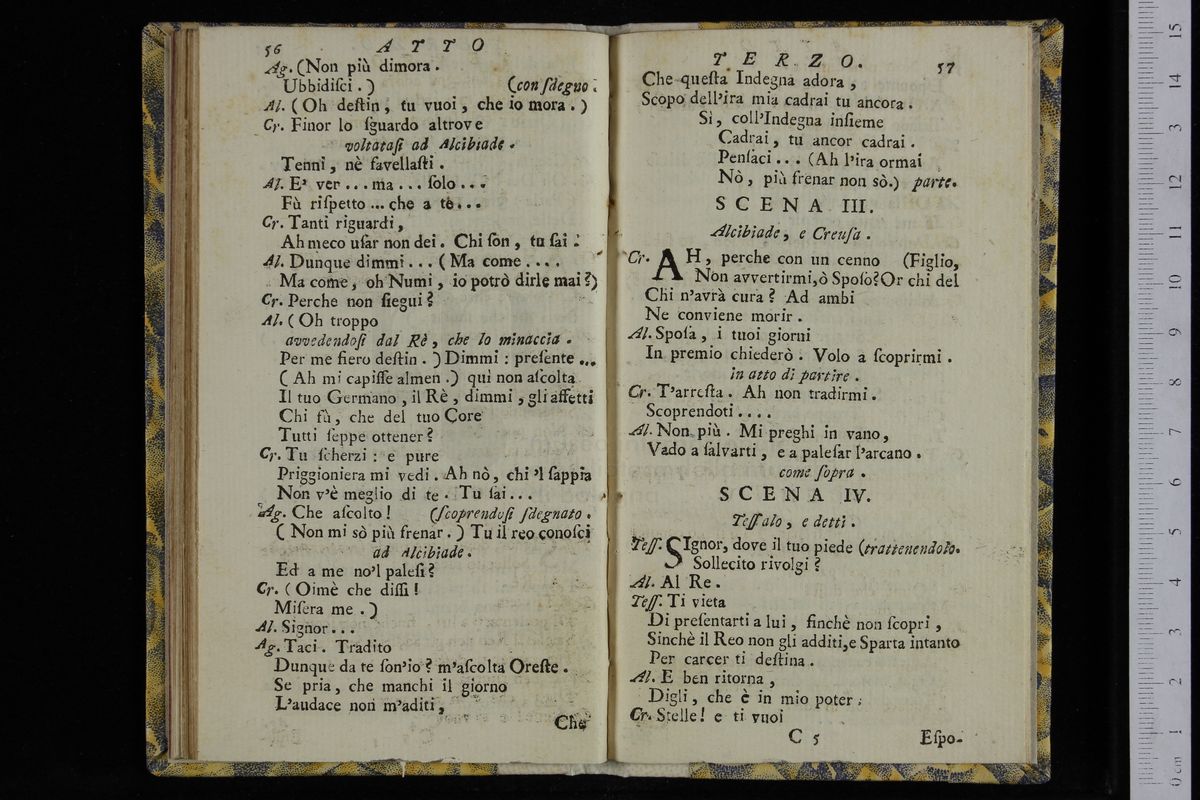 56 A T T O
Ag. (Non più dimora .
Ubbidiſci . ) (con ſdegno .
Al. ( Oh deſtin , tu vuoi , che io mora . )
Cr. Finor lo ſguardo altrove
voltataſi ad Alcibiade .
Tenni , nè favellaſti .
Al. E' ver . . . ma . . . ſolo . . .
Fù riſpetto ... che a te . . .
Cr. Tanti riguardi ,
Ah meco uſar non dei . Chi ſon , tu ſai .
Al. Dunque dimmi . . . ( Ma come . . . .
Ma come , oh Numi , io potrò dirle mai ?)
Cr. Perche non ſiegui ?
Al. ( Oh troppo
avvedendoſi dal Rè , che lo minaccia .
Per me fiero deſtin . ) Dimmi : preſente ...
( Ah mi capiſſe almen .) qui non aſcolta
Il tuo Germano , il Rè , dimmi , gli affetti
Chi fù , che del tuo Core
Tutti ſeppe ottener ?
Cr. Tu ſcherzi : e pure
Priggioniera mi vedi . Ah nò , chi 'l ſappia
Non v'è meglio di te . Tu ſai . . .
Ag. Che aſcolto ! (ſcoprendoſi ſdegnato .
( Non mi sò più frenar . ) Tu il reo conoſci
ad Alcibiade .
Ed a me no'l paleſi ?
Cr. ( Oimè che diſſi !
Miſera me . )
Al. Signor . . .
Ag. Taci . Tradito
Dunque da te ſon'io ? m'aſcolta Oreſte .
Se pria , che manchi il giorno
L'audace non m'aditi ,
Che
T E R Z O. 57
Che queſta Indegna adora ,
Scopo dell'ira mia cadrai tu ancora .
Sì , coll'Indegna inſieme
Cadrai , tu ancor cadrai .
Penſaci . . . (Ah l'ira ormai
Nò , più frenar non sò.) parte.
S C E N A III.
Alcibiade , e Creuſa .
Cr. AH , perche con un cenno (Figlio,
Non avvertirmi,ò Spoſo?Or chi del
Chi n'avrà cura ? Ad ambi
Ne conviene morir .
Al. Spoſa , i tuoi giorni
In premio chiederò . Volo a ſcoprirmi .
in atto di partire .
Cr. T'arreſta . Ah non tradirmi .
Scoprendoti . . . .
Al. Non più . Mi preghi in vano ,
Vado a ſalvarti , e a paleſar l'arcano .
come ſopra .
S C E N A IV.
Teſſalo , e detti .
Teſſ. SIgnor, dove il tuo piede (trattenendolo.
Sollecito rivolgi ?
Al. Al Re .
Teſſ. Ti vieta
Di preſentarti a lui , finchè non ſcopri ,
Sinchè il Reo non gli additi,e Sparta intanto
Per carcer ti deſtina .
Al. E ben ritorna ,
Digli , che è in mio poter .
Cr. Stelle ! e ti vuoi
C 5 Eſpo-
0 cm 1 2 3 4 5 6 7 8 9 10 11 12 13 14 15